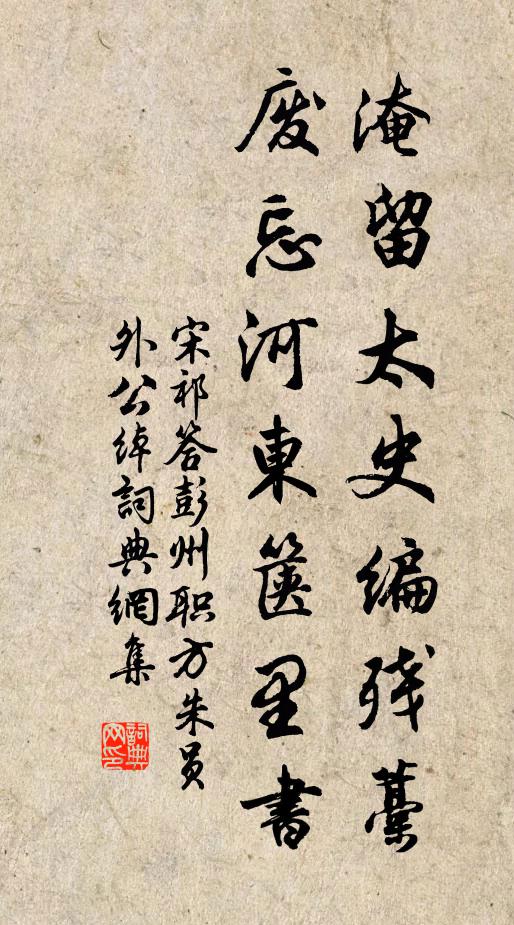 淹留太史编残藁
废忘河東箧里書
宋祁答彭州职方朱员
外公绰詞典網集
詞典網印